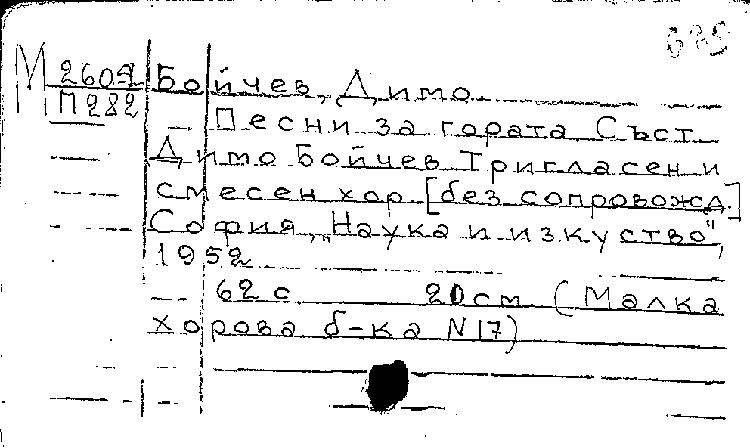 675
М 2602 Бойчев, Димо.
П 282
Песни за гората Съст.
Димо Бойчев Тригласен и
смесен хор [без сопровожд.]
София, „Наука и изкуство",
1952
62 с 20 см (Малка
хорова б-ка N 17)